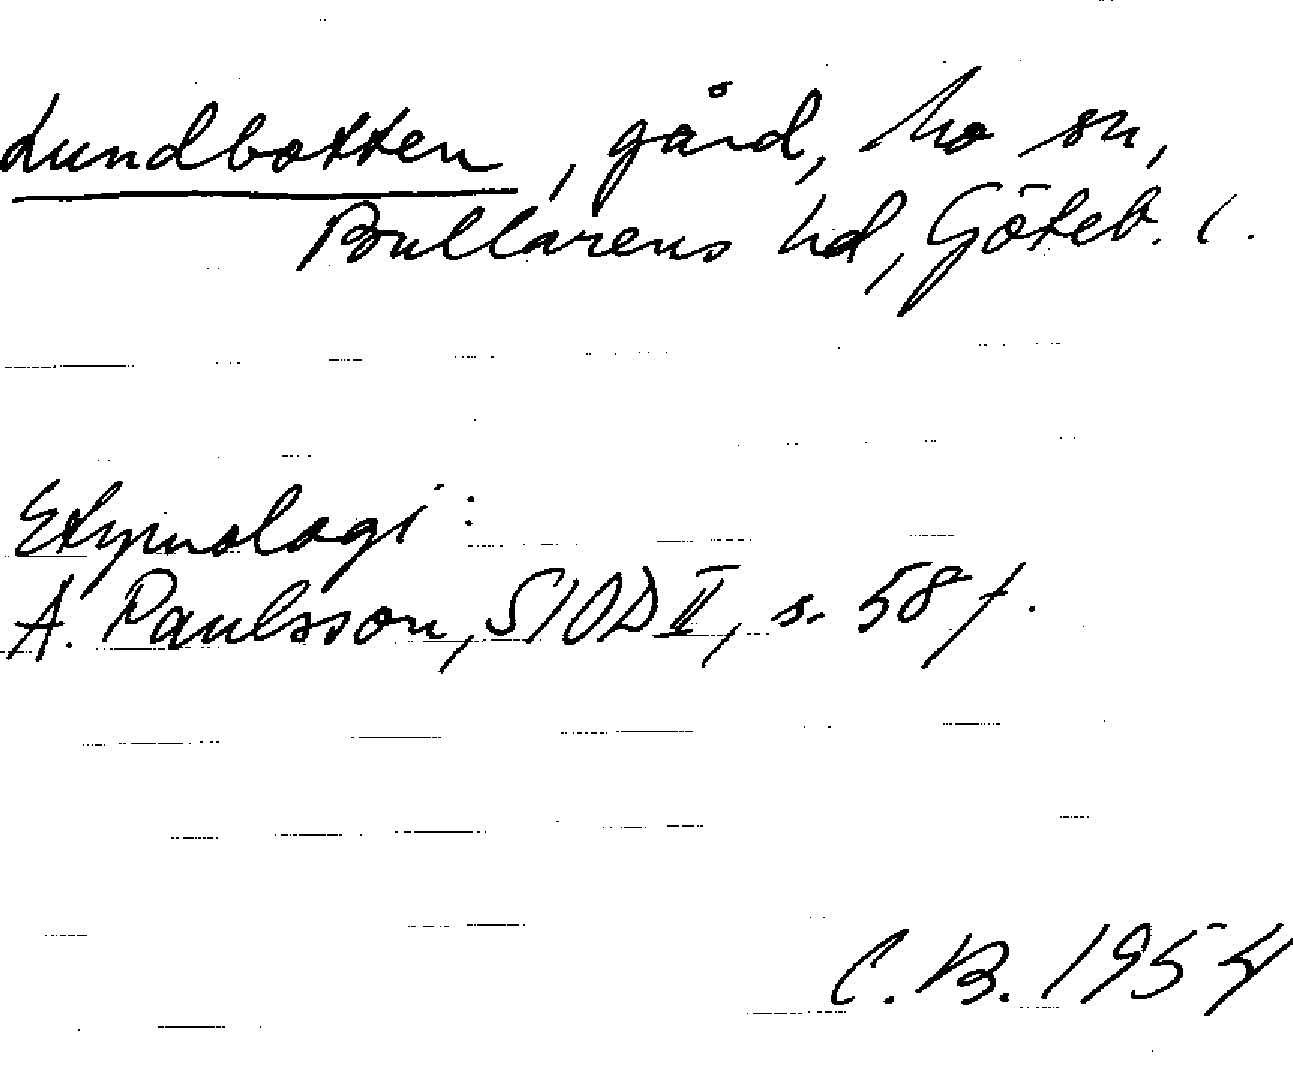 Lundbotten, gård, Mo sn,
Bullarens hd, Göteb. l.
Etymologi:
A. Paulsson, SIOD II, s. 58 f.
C. B. 1954